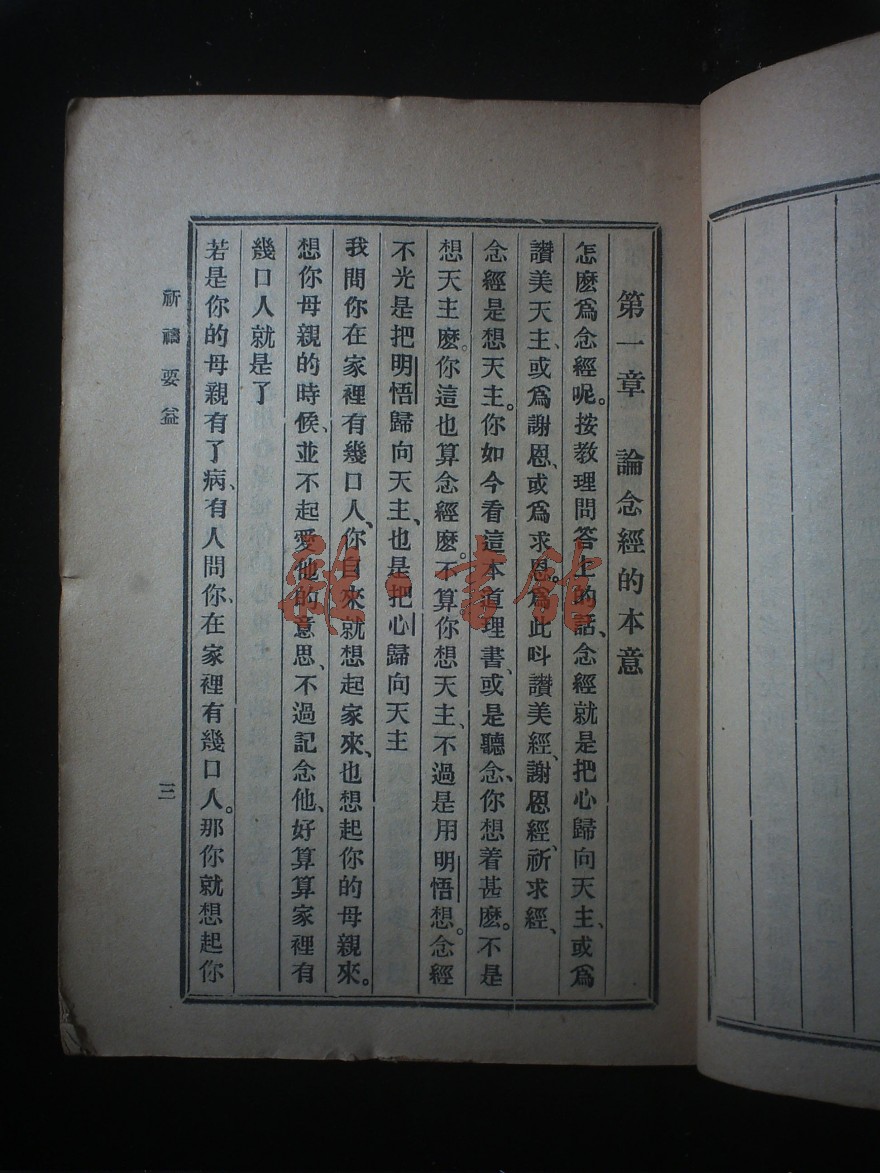 第一章 論念經的本意
怎麽爲念經呢。按教理問答上的話、念經就是把心歸向天主、或爲
讃美天主、或爲謝恩、或爲求恩。爲此呌讃美經、謝恩經、祈求經、
念經是想天主。你如今看這本道理書、或是聽念、你想着甚麽。不是
想天主麽。你這也算念經麽。不算。你想天主、不過是用明悟想。念經
不光是把明悟歸向天主、也是把心歸向天主
我問你在家裡有幾口人、你自來就想起家來、也想起你的母親來。
想你母親的時候、並不起愛他的意思、不過記念他、好算算家裡有
幾口人就是了
若是你的母親有了病、有人問你、在家裡有幾口人。那你就想起你
祈禱要益
三
雜·書舘